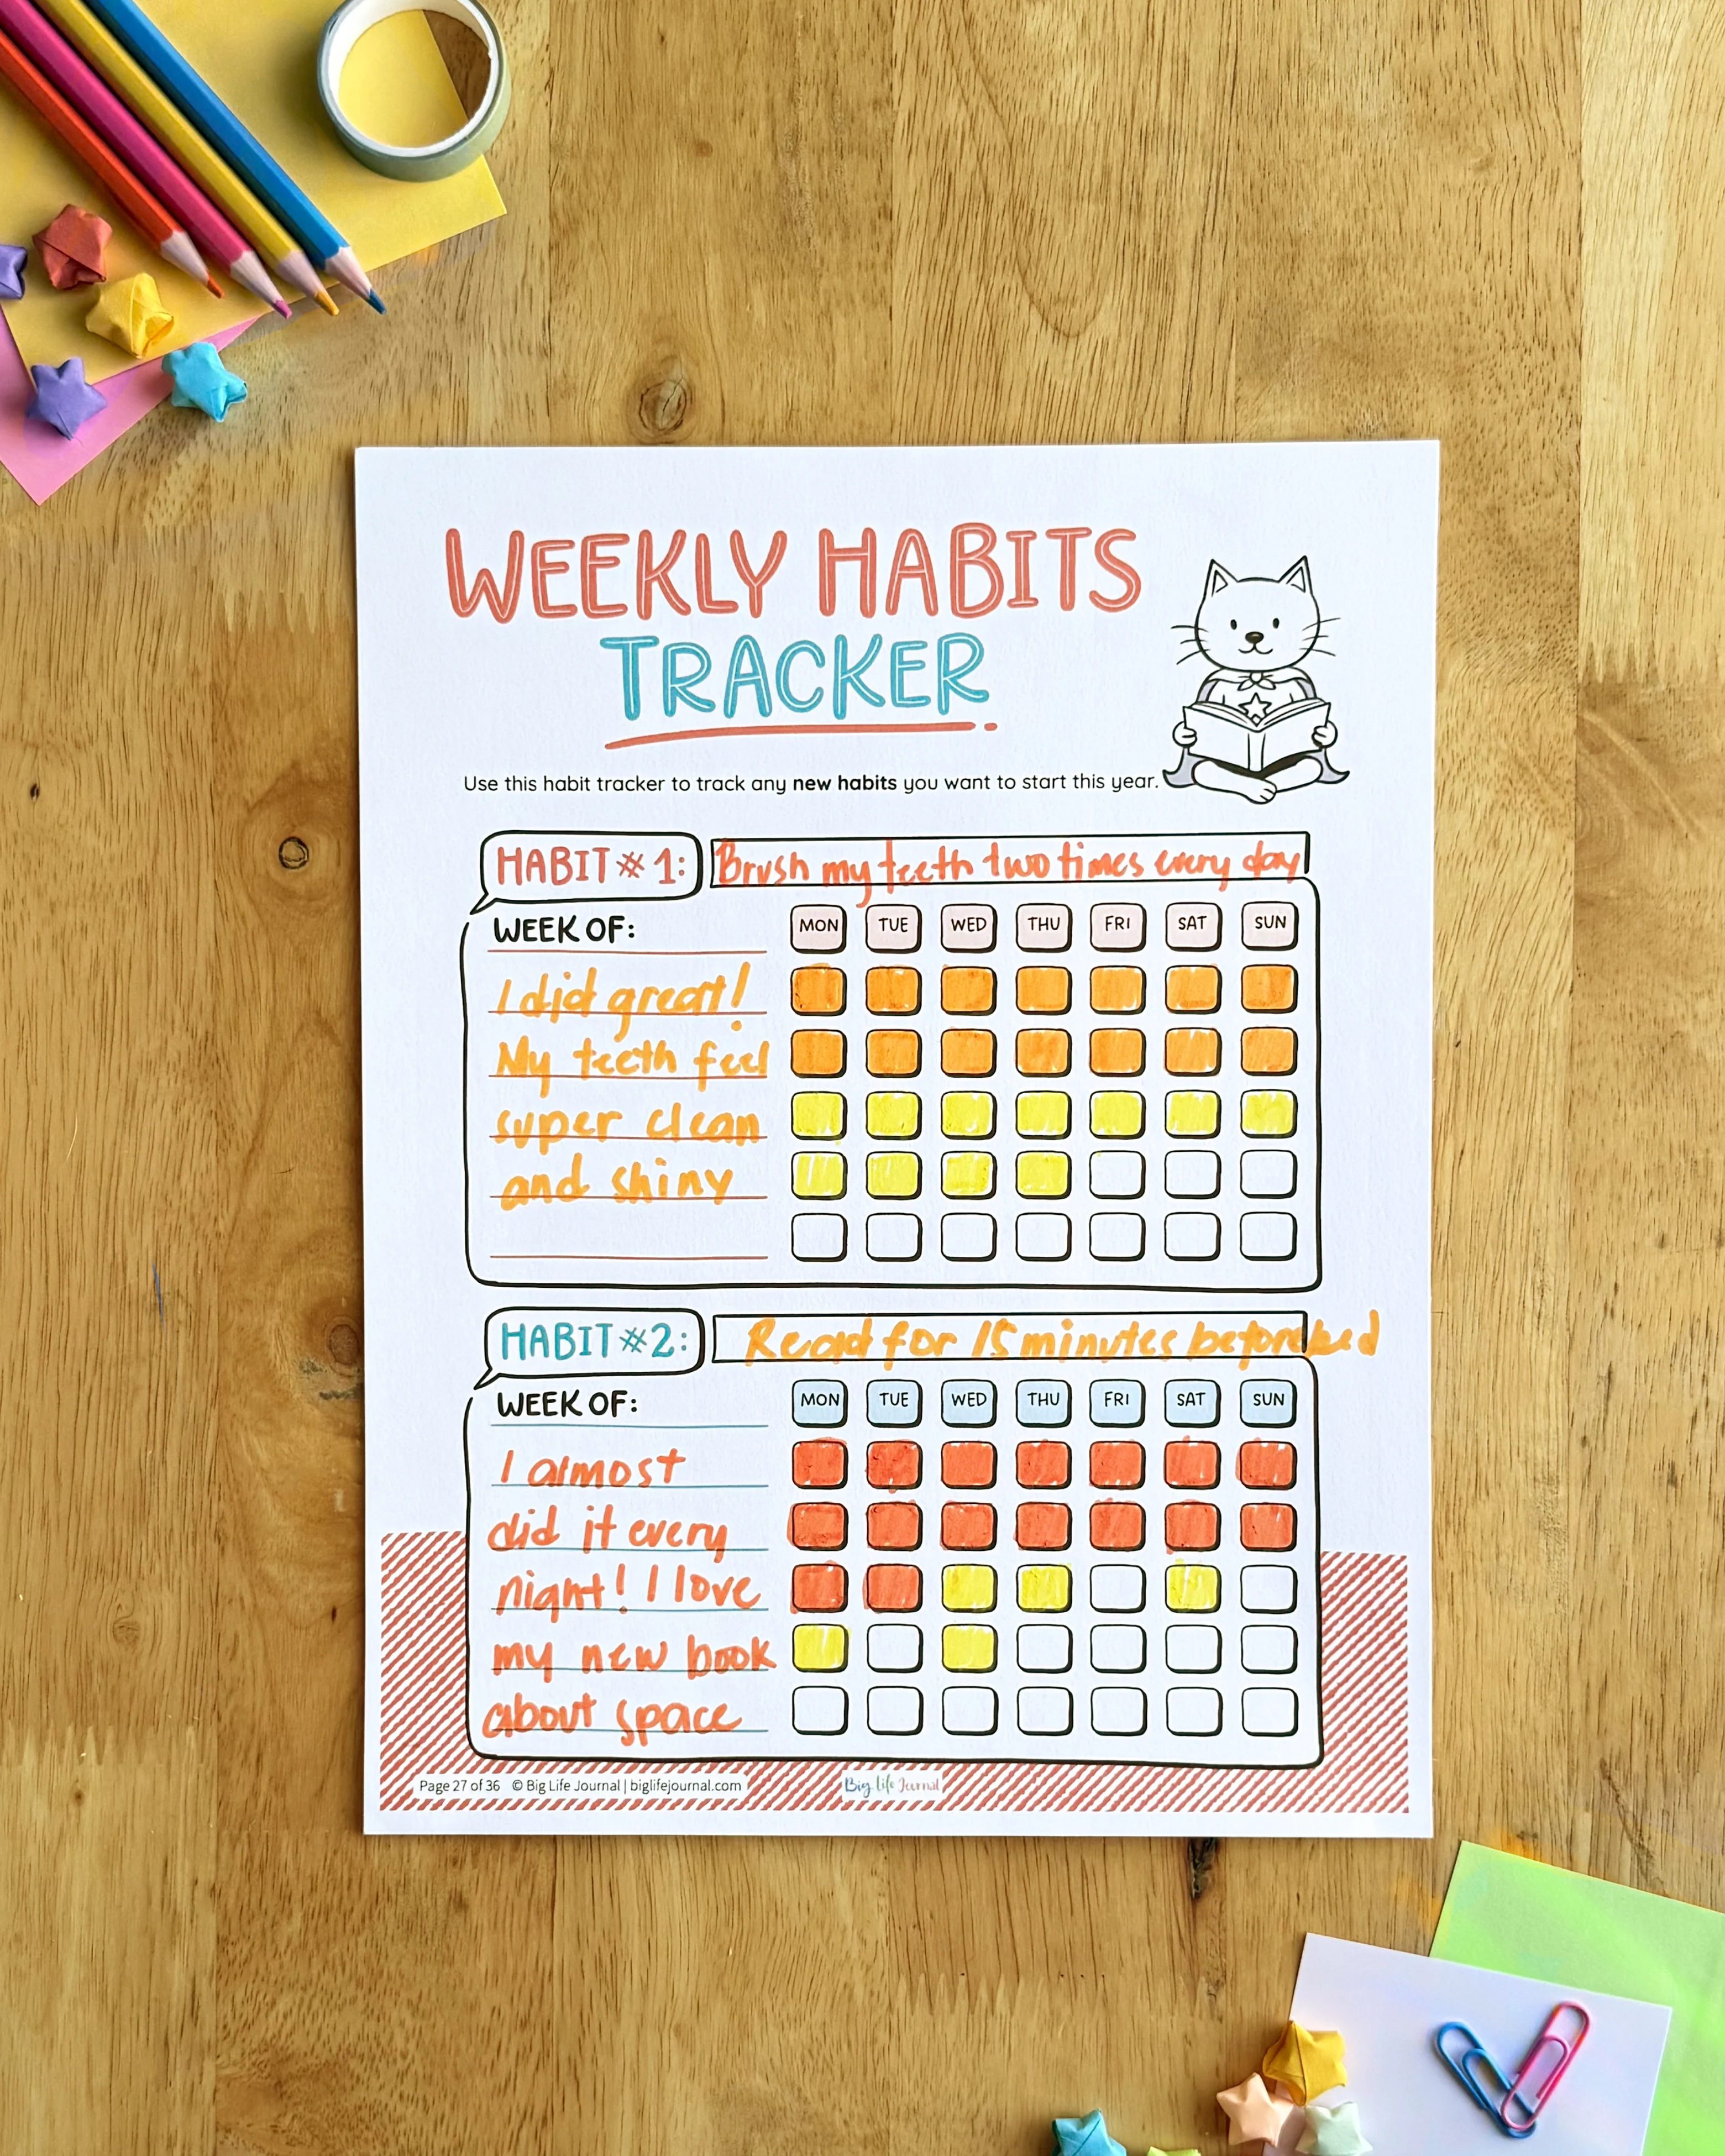 WEEKLY HABITS
TRACKER
Use this habit tracker to track any new habits you want to start this year.
HABIT #1: Brush my teeth two times every day
WEEK OF: MON TUE WED THU FRI SAT SUN
I did great!
My teeth feel
super clean
and shiny
HABIT #2: Read for 15 minutes before bed
WEEK OF: MON TUE WED THU FRI SAT SUN
I almost
did it every
night! I love
my new book
about space
Page 27 of 36 © Big Life Journal | biglifejournal.com Big Life Journal